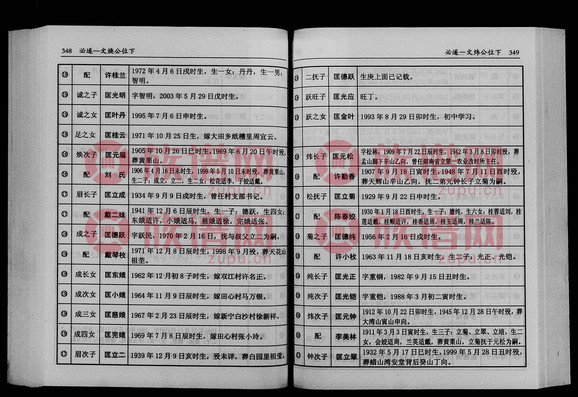 348 必遂—文焕公位下
配 许桂兰 1972年4月6日戌时生。生一女;丹丹,生一男;智明。
诚之子 匡光明 字智明,2003年5月29日戌时生。
诚之女 匡叶丹 1995年7月6日申时生。
足之女 匡桂云 1971年10月25日生,嫁大田乡纸槽里周宜云。
焕次子 匡元
1905年10月26日巳时生,1969年6月20日午时殁,葬黄栗山。
配 刘氏 1906年4月16日未时生,1998年5月10日未时殁,葬黄栗山。
生二子;成立、立二。生二女;松花适王、子姣适戴。
眉长子 匡立成 1934年9月9日戌时生,曾任村支部书记。
配 戴二妹 1941年12月6日辰时生,生一子;德跃,生四女;
东娥适许、小娥适马、慈娥适张、完娥适张。
成之子 匡德跃 字跃民,1970年2月16日,抚与叔父立二为嗣。
配 戴琴枚 1971年12月8日辰时生,1998年9月殁,葬大花山祖茔。
成长女 匡东娥 1962年12月初8子时生,嫁双江村许名正。
成次女 匡小娥 1964年11月9日辰时生,嫁田心村马乃银。
成三女 匡慈娥 1967年2月23日辰时生,嫁新宁白沙村徐新祥。
成四女 匡完娥 1969年7月8日辰时生,嫁田心村张小玲。
眉次子 匡立二 1939年12月9日亥时生,殁未详,葬白园里祖茔。
必遂—文炜公位下 349
二抚子 匡德跃 生庚上面已记载。
跃旺子 匡光应 旺丁。
跃之女 匡金叶 1993年8月29日卯时生,初中学习。
炜长子 匡元松 字松林,1909年7月22日辰时生,1942年3月8日卯时殁,葬
孟山脚下辛山乙向,曾任湖南省立第一农业改时所主任。
配 许勤香 1907年9月17日卯时生,1948年7月11日酉时殁,
葬天辉山辛山乙向,抚二弟元钟长子立菊为嗣。
松抚子 匡立菊 1929年1月9日申时生。
配 陈春姣 1930年1月18日酉时生,生一子;德纯,生六女;桂蓉适刘、桂兰适刘、
桂娥适杨、桂顺适许、桂花适王、桂玉适兰。
菊之子 匡德纯 1956年2月16日戌时生。
配 许小枚 1963年11月18日亥时生,生二子;光正、光铠。
纯长子 匡光正 字重钢,1982年9月15日丑时生。
纯次子 匡光铠 字重银,1984年3月初二寅时生。
炜次子 匡元钟 1912年10月22日卯时生,1945年12月28日午时殁,葬
大湾山寅山申向。
配 李美林 1911年3月3日寅时生,生三子;立菊、立翠、立培,生二
女;会姣适周、兰英适戴。葬黄栗山,立菊抚子元松为嗣。
钟次子 匡立翠 1932年5月17日已时生,1999年5月28日丑时殁,
葬蜡山湾安堂背后癸山丁向。